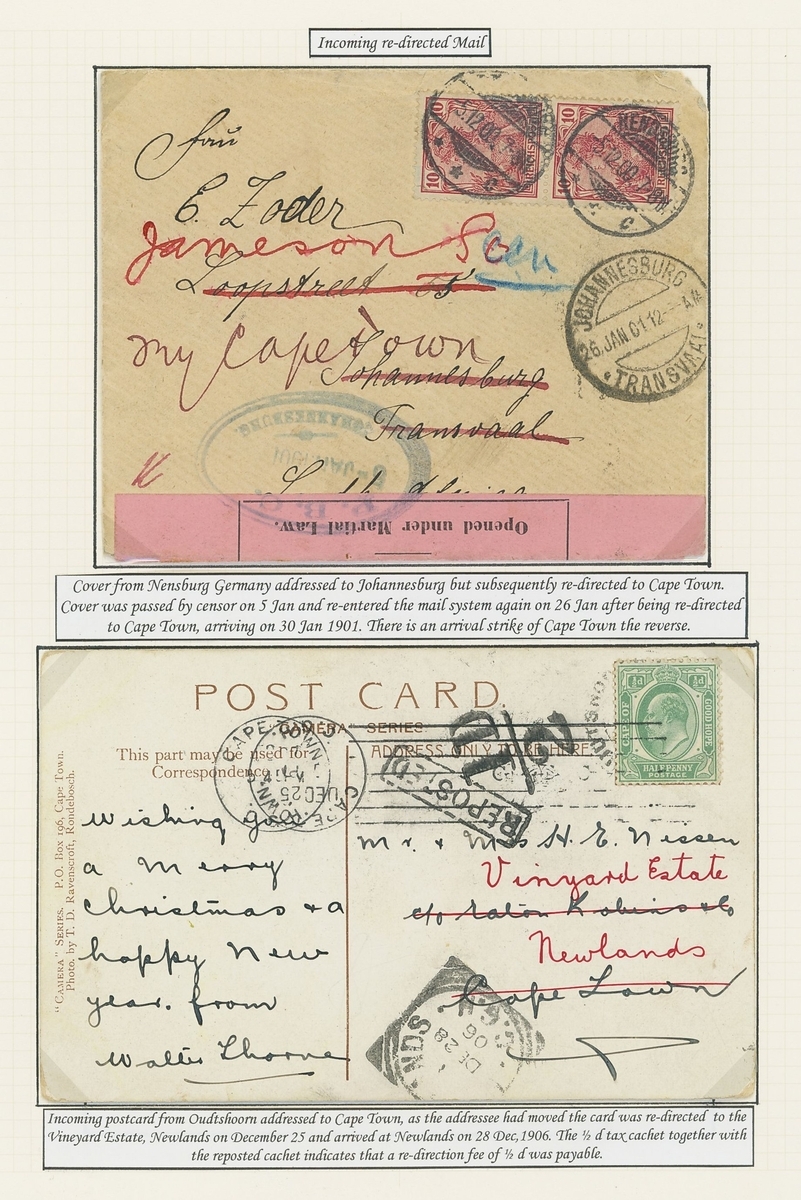 Incoming re-directed Mail
10 REICHSPOST 10 REICHSPOST
Frau
E. Zoder
Jameson
Loopstreet
My Cape Town
Johannesburg
Transvaal
South Africa
JOHANNESBURG
26.JAN 01 12- AM
TRANSVAAL
JOHANNESBURG
Opened under Martial Law.
Cover from Nensburg Germany addressed to Johannesburg but subsequently re-directed to Cape Town.
Cover was passed by censor on 5 Jan and re-entered the mail system again on 26 Jan after being re-directed
to Cape Town, arriving on 30 Jan 1901. There is an arrival strike of Cape Town the reverse.
POST CARD
"CAMERA" SERIES
This part may be used for
Correspondence
ADDRESS ONLY TO BE HERE
CAPE TOWN
DEC 25
REPOSTED
1/2D
CAPE OF GOOD HOPE
½d ½d
HALFPENNY
POSTAGE
"CAMERA" SERIES. P.O. Box 196, Cape Town.
Photo. by T. D. Ravenscroft, Rondebosch.
Wishing you
a Merry
Christmas & a
happy New
year. from
Walter Thorne
Mr. & Mrs H. E. Nissen
Vinyard Estate
c/o Eaton Robins & Co
Newlands
Cape Town
NDS
DE 28
06
C.G.H.
Incoming postcard from Oudtshoorn addressed to Cape Town, as the addressee had moved the card was re-directed to the
Vineyard Estate, Newlands on December 25 and arrived at Newlands on 28 Dec,1906. The ½ d tax cachet together with
the reposted cachet indicates that a re-direction fee of ½ d was payable.